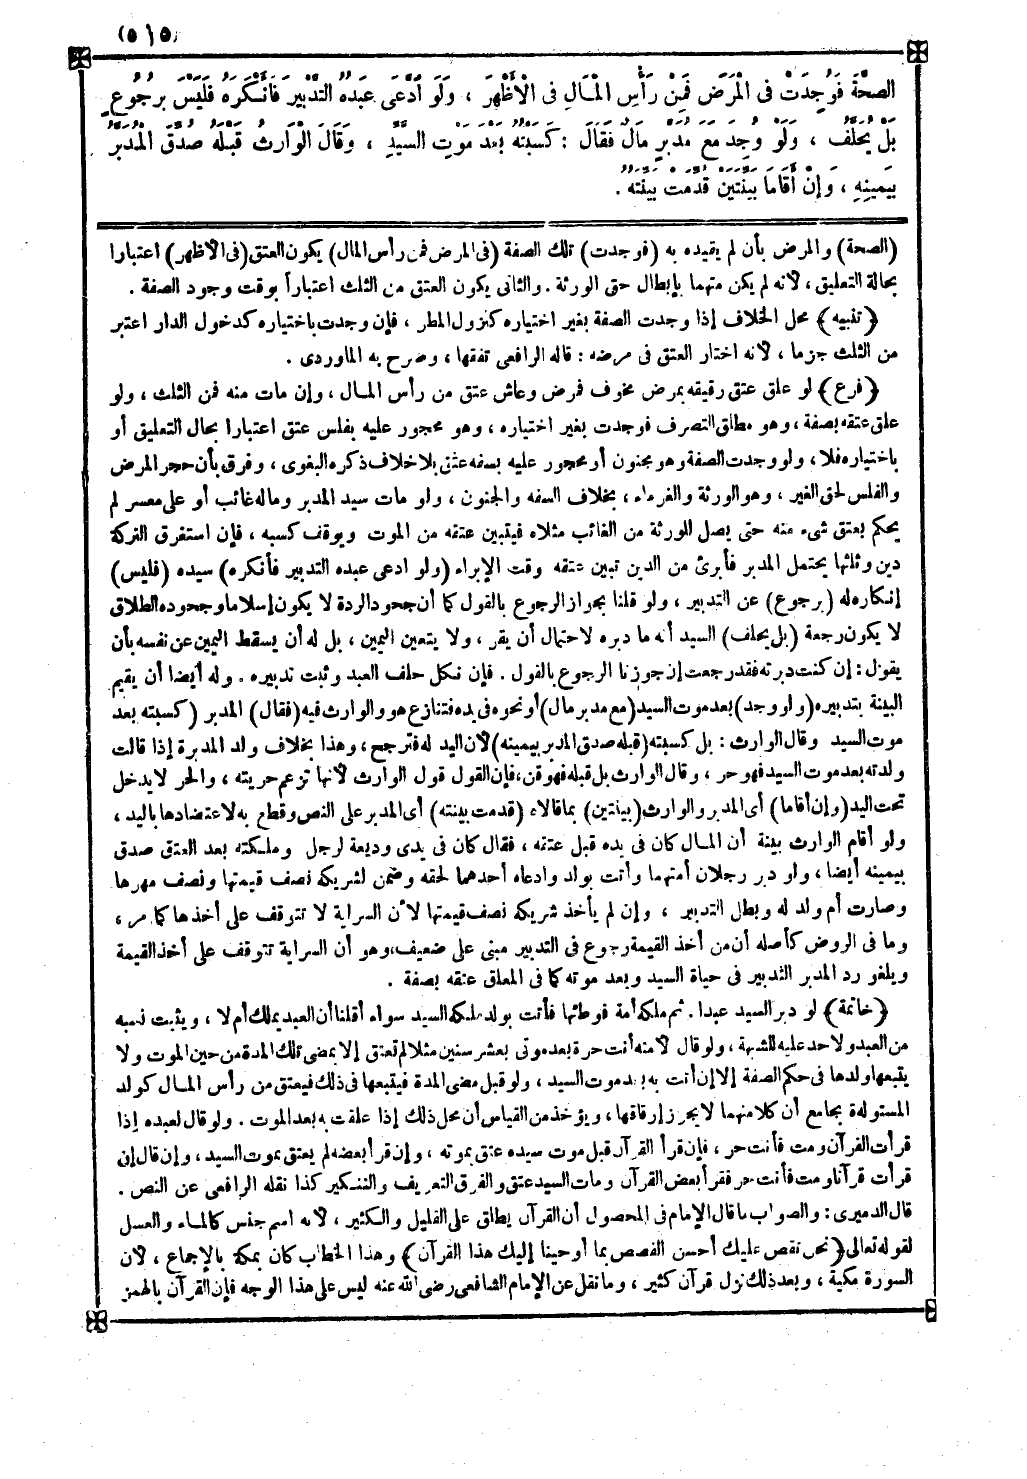 (٥١٥)
الصِّحَّةَ فَوُجِدَتْ فِى الْمَرَضِ فَمِنْ رَأْسِ الْمَالِ فِى الْأَظْهَرِ ، وَلَوِ ادَّعَى عَبْدُهُ التَّدْبِيرَ فَأَنْكَرَهُ فَلَيْسَ بِرُجُوعٍ
بَلْ يُحَلَّفُ ، وَلَوْ وُجِدَ مَعَ مُدَبَّرٍ مَالٌ فَقَالَ : كَسَبْتُهُ بَعْدَ مَوْتِ السَّيِّدِ ، وَقَالَ الْوَارِثُ قَبْلَهُ صُدِّقَ الْمُدَبَّرُ
بِيَمِينِهِ ، وَإِنْ أَقَامَا بَيِّنَتَيْنِ قُدِّمَتْ بَيِّنَتُهُ .
(الصحة) والمرض بأن لم يقيده به (فوجدت) تلك الصفة (فى المرض فمن رأس المال) يكون العتق (فى الأظهر) اعتبارا
بحالة التعليق ، لأنه لم يكن متهما بإبطال حق الورثة . والثانى يكون العتق من الثلث اعتباراً بوقت وجود الصفة .
﴿تنبيه﴾ محل الخلاف إذا وجدت الصفة بغير اختياره كنزول المطر ، فإن وجدت باختياره كدخول الدار اعتبر
من الثلث جزما ، لأنه اختار العتق فى مرضه : قاله الرافعى تفقها ، وصرح به الماوردى .
﴿فرع﴾ لو علق عتق رقيقه بمرض مخوف فمرض وعاش عتق من رأس المال ، وإن مات منه فمن الثلث ، ولو
علق عتقه بصفة ، وهو مطلق التصرف فوجدت بغير اختياره ، وهو محجور عليه بفلس عتق اعتبارا بحال التعليق أو
باختياره فلا ، ولو وجدت الصفة وهو مجنون أو محجور عليه بسفه عتق بلا خلاف ذكره البغوى ، وفرق بأن حجر المرض
والفلس لحق الغير ، وهو الورثة والغرماء ، بخلاف السفه والجنون ، ولو مات سيد المدبر وماله غائب أو على معسر لم
يحكم بعتق شىء منه حتى يصل للورثة من الغائب مثلاه فيتبين عتقه من الموت ويوقف كسبه ، فإن استغرق التركة
دين وثلثها يحتمل المدبر فأبرئ من الدين تبين عتقه وقت الإبراء (ولو ادعى عبده التدبير فأنكره) سيده (فليس)
إنكاره له (برجوع) عن التدبير ، ولو قلنا بجواز الرجوع بالقول كما أن جحود الردة لا يكون إسلاما وجحوده الطلاق
لا يكون رجعة (بل يحلف) السيد أنه ما دبره لاحتمال أن يقر ، ولا يتعين اليمين ، بل له أن يسقط اليمين عن نفسه بأن
يقول : إن كنت دبرته فقد رجعت إن جوزنا الرجوع بالقول . فإن نكل حلف العبد وثبت تدبيره . وله أيضا أن يقيم
البينة بتدبيره (ولو وجد) بعد موت السيد (مع مدبر مال) أو نحوه فى يده فتنازع هو والوارث فيه (فقال) المدبر (كسبته بعد
موت السيد وقال الوارث : بل كسبته (قبله صدق المدبر بيمينه) لأن اليد له فترجح ، وهذا بخلاف ولد المدبرة إذا قالت
ولدته بعد موت السيد فهو حر ، وقال الوارث بل قبله فهو قن ، فإن القول قول الوارث لأنها تزعم حريته ، والحر لا يدخل
تحت اليد (وإن أقاما) أى المدبر والوارث (بينتين) بما قالاه (قدمت بينته) أى المدبر على النص وقطع به لاعتضادها باليد ،
ولو أقام الوارث بينة أن المال كان فى يده قبل عتقه ، فقال كان فى يدى وديعة لرجل وملكته بعد العتق صدق
بيمينه أيضا ، ولو دبر رجلان أمتهما وأتت بولد وادعاه أحدهما لحقه وضمن لشريكه نصف قيمتها ونصف مهرها
وصارت أم ولد له وبطل التدبير ، وإن لم يأخذ شريكه نصف قيمتها لأن السراية لا تتوقف على أخذها كما مر ،
وما فى الروض كأصله أن من أخذ القيمة رجوع فى التدبير مبنى على ضعيف ، وهو أن السراية تتوقف على أخذ القيمة
ويلغو رد المدبر التدبير فى حياة السيد وبعد موته كما فى المعلق عتقه بصفة .
﴿خاتمة﴾ لو دبر السيد عبدا . ثم ملكه أمة فوطئها فأتت بولد ملكه السيد سواء أقلنا أن العبد يملك أم لا ، ويثبت نسبه
من العبد ولا حد عليه للشبهة ، ولو قال لأمته أنت حرة بعد موتى بعشر سنين مثلا لم تعتق إلا بمضى تلك المدة من حين الموت ولا
يتبعها ولدها فى حكم الصفة إلا إن أتت به بعد موت السيد ، ولو قبل مضى المدة فيتبعها فى ذلك فيعتق من رأس المال كولد
المستولدة بجامع أن كلا منهما لا يجوز إرقاقها ، ويؤخذ من القياس أن محل ذلك إذا علقت به بعد الموت . ولو قال لعبده إذا
قرأت القرآن ومت فأنت حر ، فإن قرأ القرآن قبل موت سيده عتق بموته ، وإن قرأ بعضه لم يعتق بموت السيد ، وإن قال إن
قرأت قرآنا ومت فأنت حر فقرأ بعض القرآن ومات السيد عتق والفرق التعريف والتنكير كذا نقله الرافعى عن النص .
قال الدميرى : والصواب ما قال الإمام فى المحصول أن القرآن يطلق على القليل والكثير ، لأنه اسم جنس كالماء والعسل
لقوله تعالى ﴿نحن نقص عليك أحسن القصص بما أوحينا إليك هذا القرآن﴾ وهذا الخطاب كان بمكة بالإجماع ، لأن
السورة مكية ، وبعد ذلك نزل قرآن كثير ، وما نقل عن الإمام الشافعى رضى الله عنه ليس على هذا الوجه فإن القرآن بالهمز